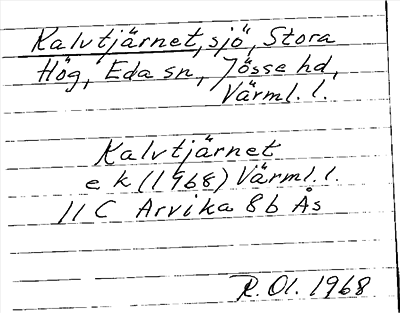 Kalvtjärnet, sjö, Stora
Hög, Eda sn, Jösse hd,
Värml. l.
Kalvtjärnet
e k (1968) Värml. l.
11 C Arvika 8b Ås
R. Ol. 1968